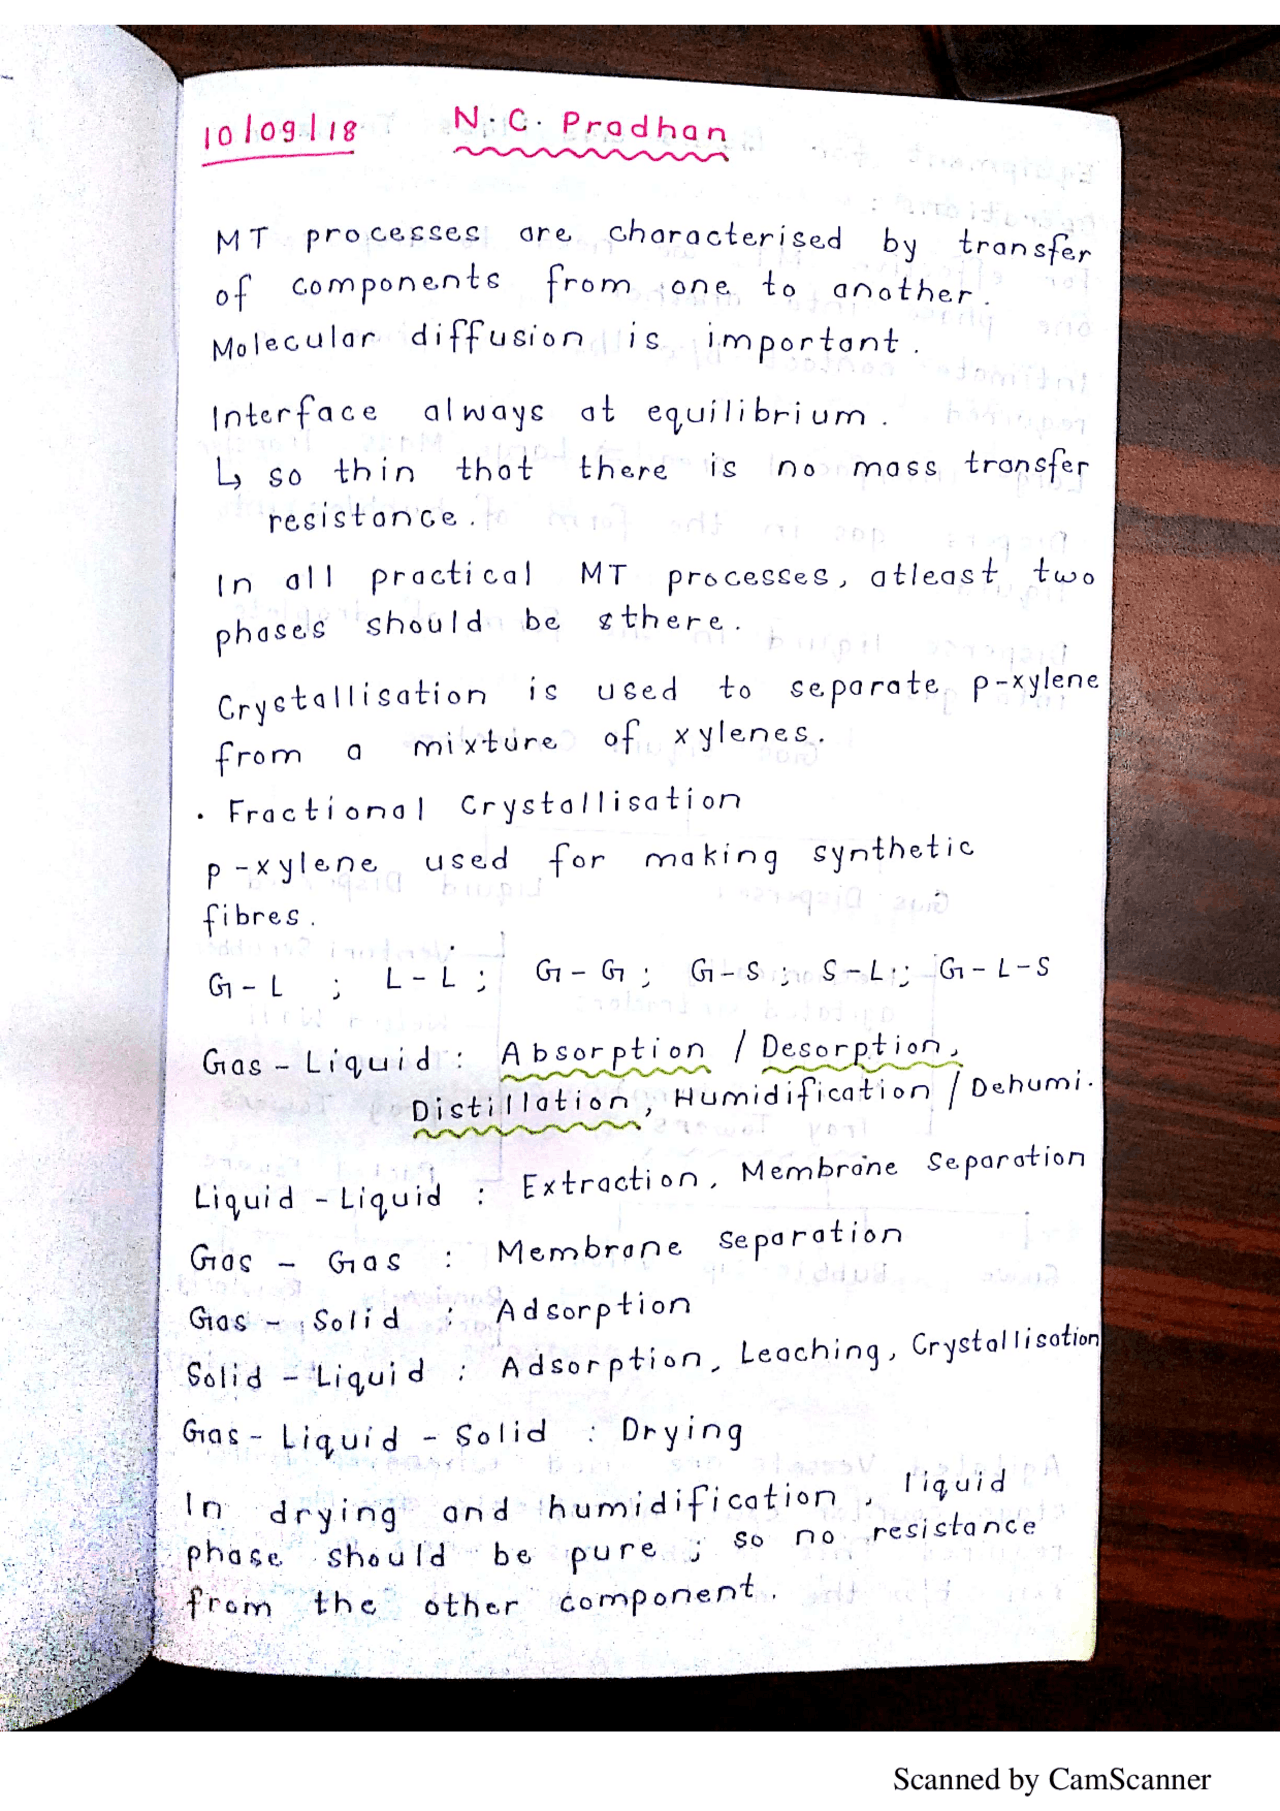 10/09/18 N.C. Pradhan
MT processes are characterised by transfer
of components from one to another.
Molecular diffusion is important.
Interface always at equilibrium.
↳ so thin that there is no mass transfer
resistance.
In all practical MT processes, atleast two
phases should be there.
Crystallisation is used to separate p-xylene
from a mixture of xylenes.
· Fractional Crystallisation
p-xylene used for making synthetic
fibres.
G-L ; L-L ; G-G ; G-S ; S-L ; G-L-S
Gas-Liquid : Absorption / Desorption,
Distillation, Humidification / Dehumi.
Liquid-Liquid : Extraction, Membrane Separation
Gas - Gas : Membrane Separation
Gas - Solid : Adsorption
Solid - Liquid : Adsorption, Leaching, Crystallisation
Gas - Liquid - Solid : Drying
In drying and humidification, liquid
phase should be pure ; so no resistance
from the other component.
Scanned by CamScanner